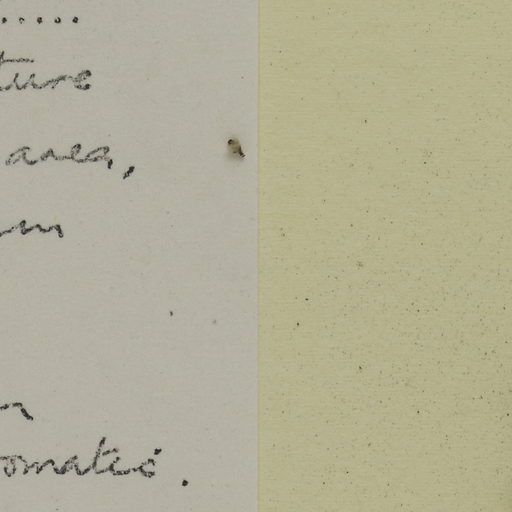 ......
ture
area,
omatic.